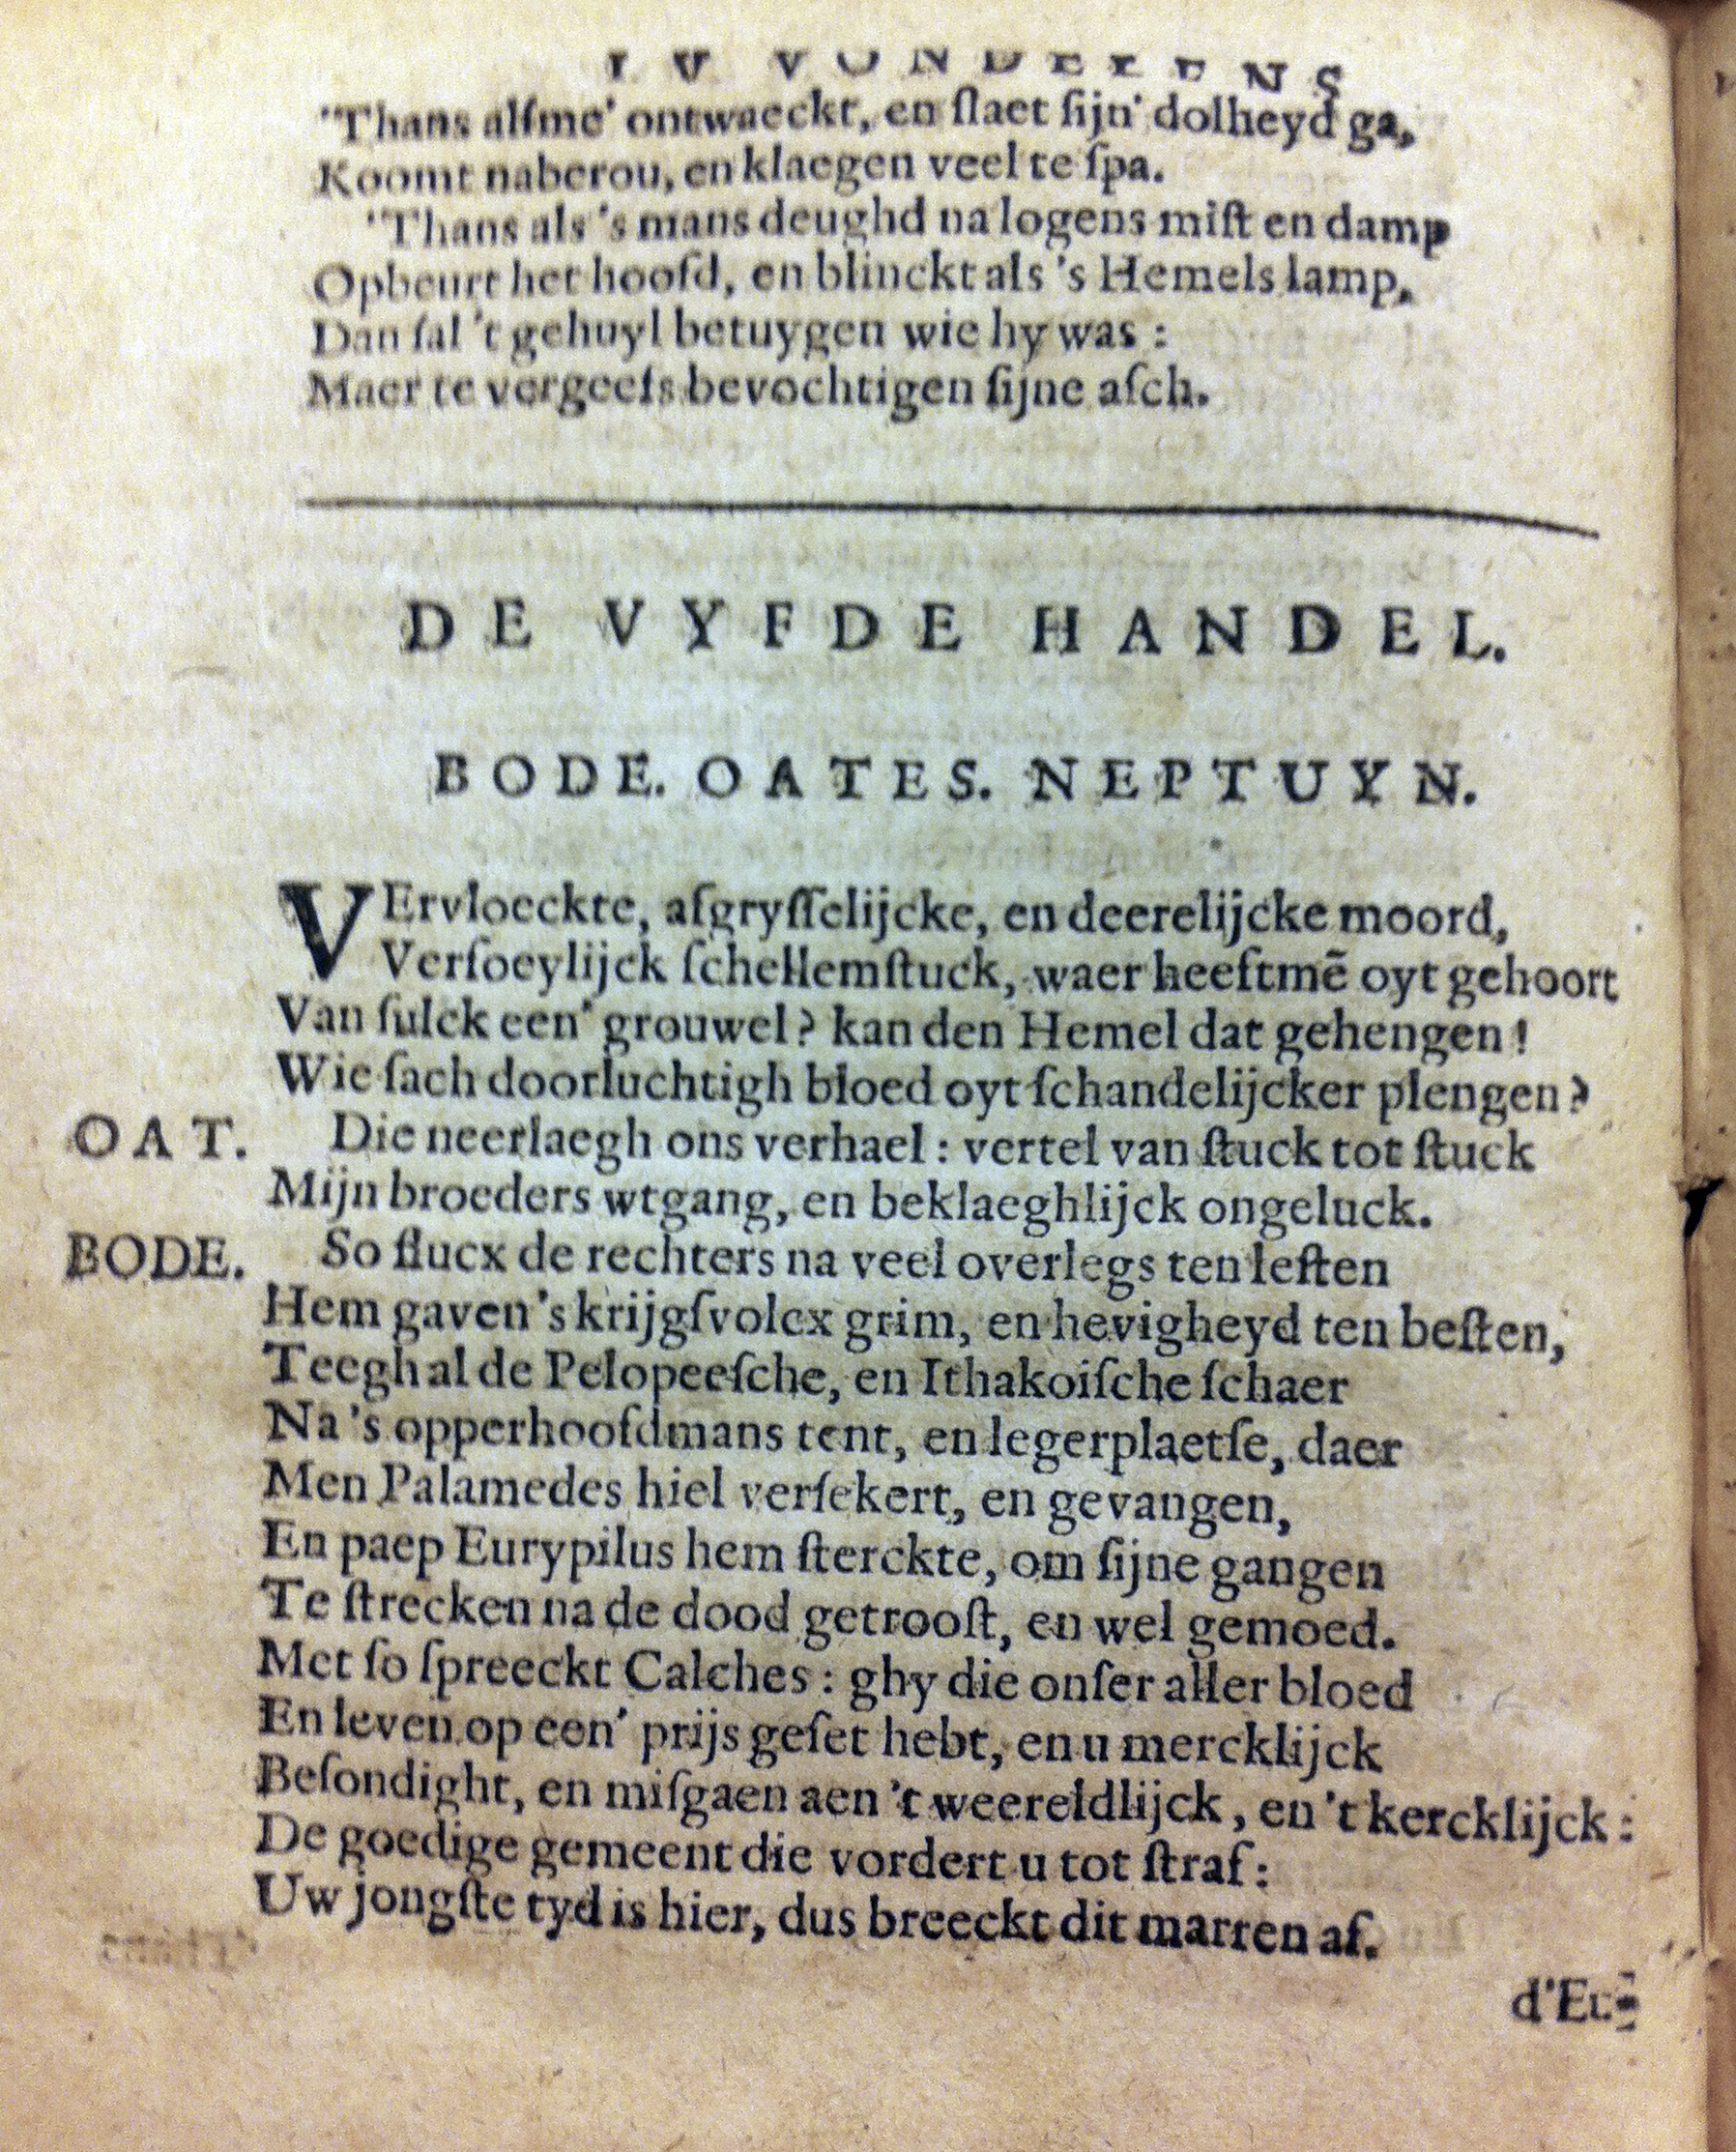 I V VONDELENS
'Thans alsme' ontwaeckt, en slaet sijn' dolheyd ga,
Koomt naberou, en klaegen veel te spa.
'Thans als 's mans deughd na logens mist en damp
Opbeurt het hoofd, en blinckt als 's Hemels lamp,
Dan sal 't gehuyl betuygen wie hy was:
Maer te vergeefs bevochtigen sijne asch.
DE VYFDE HANDEL.
BODE. OATES. NEPTUYN.
VErvloeckte, afgrysselijcke, en deerelijcke moord,
Verfoeylijck schellemstuck, waer heeftmẽ oyt gehoort
Van sulck een' grouwel? kan den Hemel dat gehengen!
Wie sach doorluchtigh bloed oyt schandelijcker plengen?
OAT. Die neerlaegh ons verhael: vertel van stuck tot stuck
Mijn broeders wtgang, en beklaeghlijck ongeluck.
BODE. So flucx de rechters na veel overlegs ten lesten
Hem gaven 's krijgsvolcx grim, en hevigheyd ten besten,
Teegh al de Pelopeesche, en Ithakoische schaer
Na 's opperhoofdmans tent, en legerplaetse, daer
Men Palamedes hiel versekert, en gevangen,
En paep Eurypilus hem sterckte, om sijne gangen
Te strecken na de dood getroost, en wel gemoed.
Met so spreeckt Calches: ghy die onser aller bloed
En leven op een' prijs geset hebt, en u mercklijck
Besondight, en misgaen aen 't weereldlijck, en 't kercklijck:
De goedige gemeent die vordert u tot straf:
Uw jongste tyd is hier, dus breeckt dit marren af.
d'Eu-